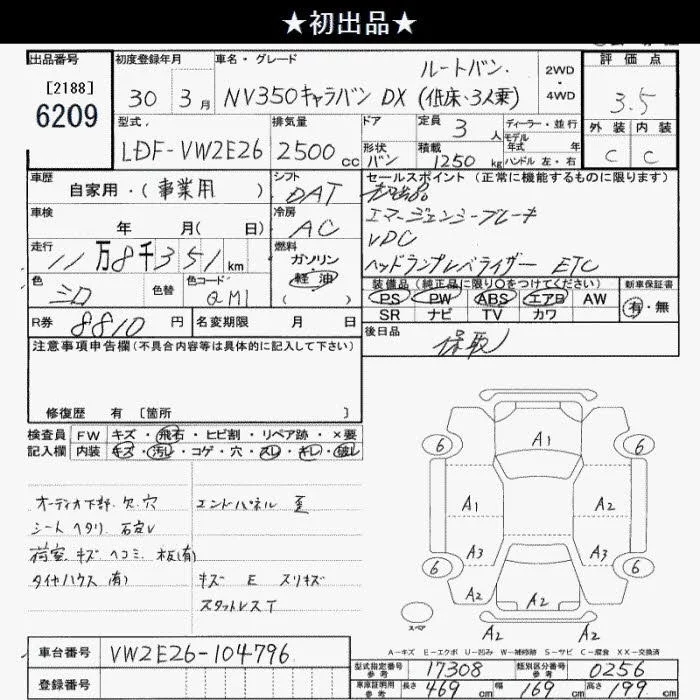 ★初出品★
出品番号 初度登録年月 車名・グレード ルートバン. 2WD 評価点
[2188]
6209 30 3月 NV350キャラバン DX (低床・3人乗) 4WD 3.5
型式. 排気量 ドア 定員 3 人 ディーラー・並行 外装 内装
LDF-VW2E26 2500cc 形状 バン 積載 1250kg モデル年式 年 ハンドル 左・右 C C
車歴 自家用・(事業用) シフト DAT セールスポイント (正常に機能するものに限ります)
車検 年 月( 日) 冷房 AC エマージェンシーブレーキ
VDC
走行 11万8千351km 燃料 ガソリン 軽油 ( ) ヘッドランプレベライザー ETC
色 シロ 色替 色コード QM1 装備品 (純正品に限り○をつけてください) 新車保証書
PS PW ABS エアB AW 有・無
R券 8810円 名変期限 月 日 SR ナビ TV カワ
後日品 保取
注意事項申告欄(不具合内容等は具体的に記入して下さい)
修復歴 有 [箇所 ]
検査員 FW キズ・飛石・ヒビ割・リペア跡・×要
記入欄 内装 キズ・汚レ・コゲ・穴・スレ・キレ・破レ
オーディオ下部.欠.穴 エンドパネル 歪
シート ヘタリ.
荷室.キズ ヘコミ. 板(有)
タイヤハウス (有) キズ E スリキズ
スタットレスT
A1
6 6
A1 A2
A3 A3
6 6
A2 A2
スペア A2 A2
A-キズ E-エクボ U-凹み W-補修跡 S-サビ C-腐食 XX-交換済
車台番号 VW2E26-104796
登録番号
型式指定番号 参考 17308 類別区分番号 参考 0256
車庫証明用 参考 長さ 469cm 幅 169cm 高さ 199cm